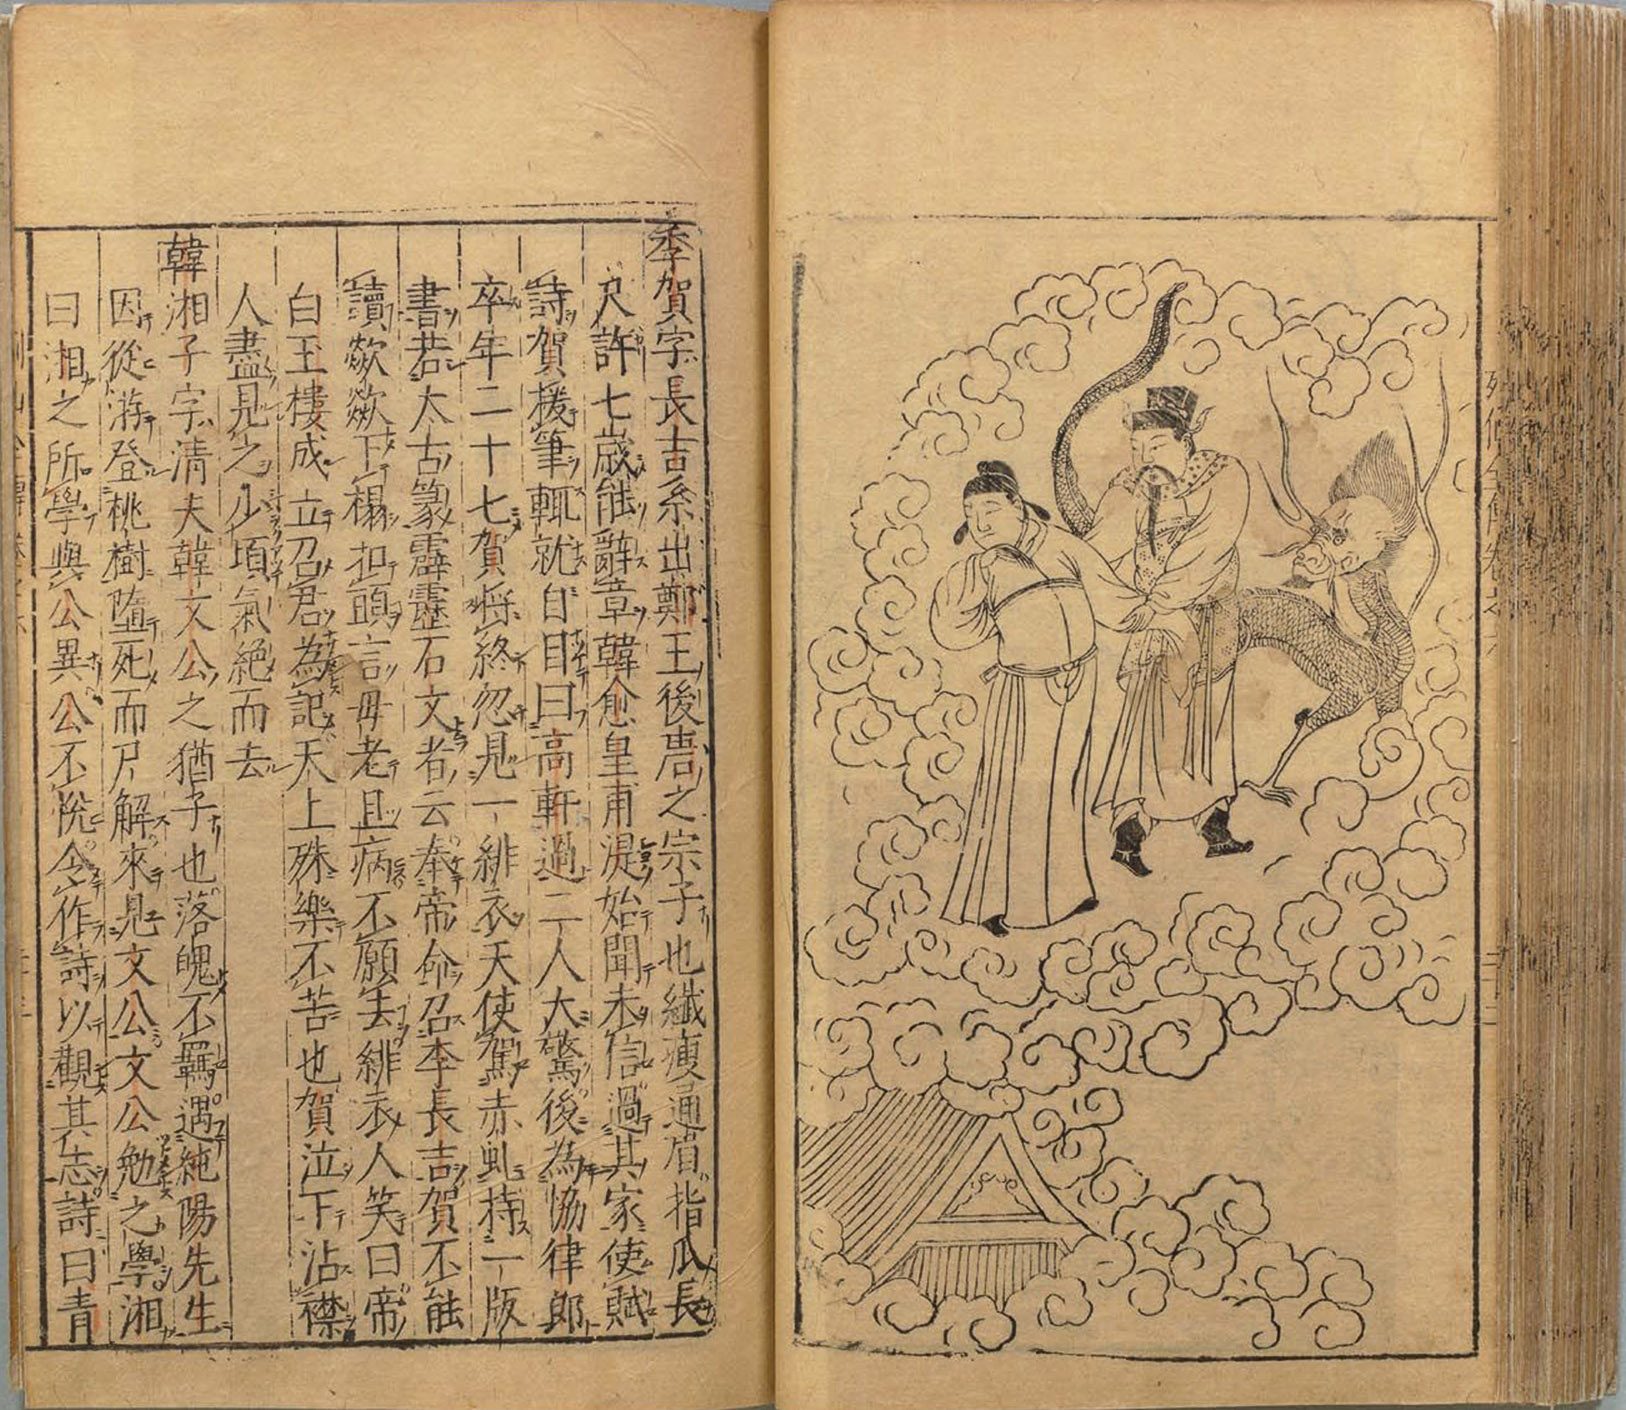 李賀字長吉系出鄭王後唐之宗子也纖瘦通眉指瓜長
尺許七歲能辭章韓愈皇甫湜始聞未信過其家使賦
詩賀援筆輒就自目曰高軒過二人大驚後為協律郎
卒年二十七賀將終忽見一緋衣天使駕赤虬持一版
書若太古篆霹靂石文者云奉帝命召李長吉賀不能
讀歘歘下榻扣頭言母老且病不願去緋衣人笑曰帝
白玉樓成立召君為記天上殊樂不苦也賀泣下沾襟
人盡見之少頃氣絕而去
韓湘子字清夫韓文公之猶子也落魄不羈遇純陽先生
因從游登桃樹墮死而尸解來見文公文公勉之學湘
曰湘之所學與公異公不悅令作詩以觀其志詩曰青